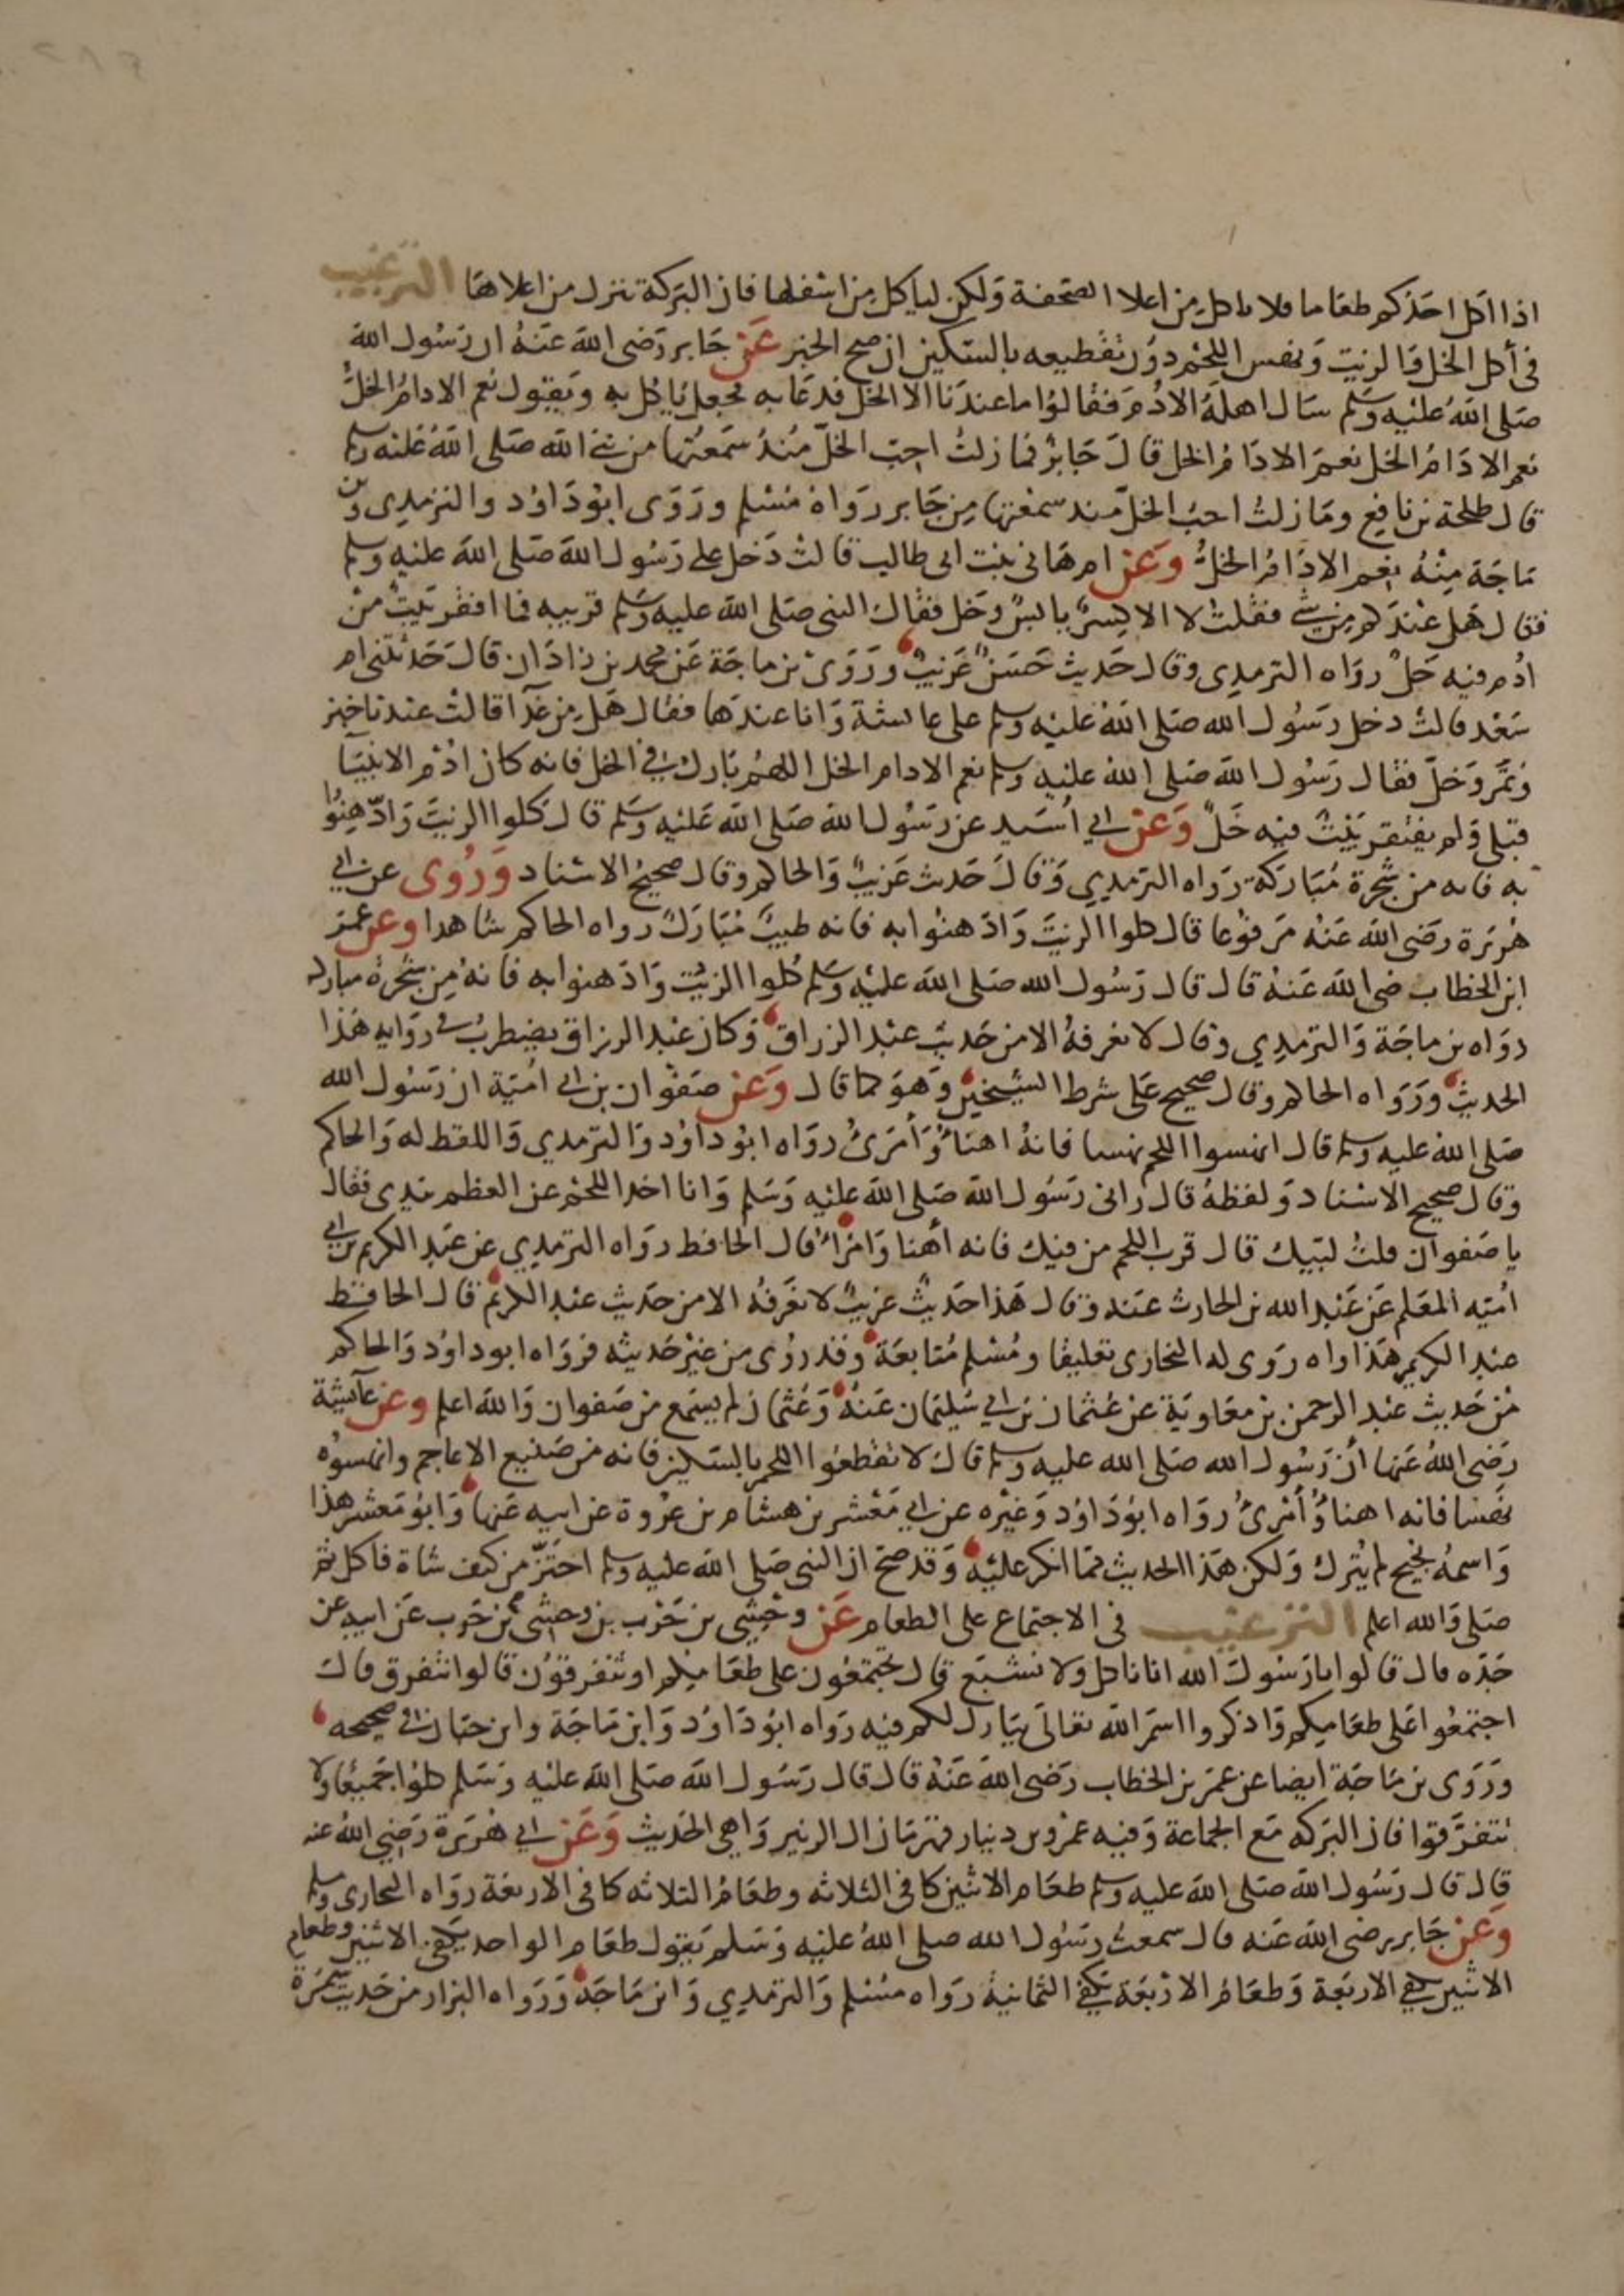 اذا اكل احدكم طعاما فلا ياكل من اعلا الصحفة ولكن لياكل من اسفلها فان البركة تنزل من اعلاها الترغيب
في أكل الخل والزيت ونهس اللحم دون تقطيعه بالسكين ان صح الخبر عن جابر رضى الله عنه ان رسول الله
صلى الله عليه وسلم سال اهله الادم فقالوا ما عندنا الا الخل فدعا به فجعل ياكل به ويقول نعم الادام الخل
نعم الادام الخل نعم الادام الخل قال جابر فما زلت احب الخل منذ سمعتها من نبي الله صلى الله عليه وسلم
قال طلحة بن نافع وما زلت احب الخل منذ سمعتها من جابر رواه مسلم وروى ابو داود والترمذى وبن
ماجة منه نعم الادام الخل وعن ام هانى بنت ابى طالب قالت دخل على رسول الله صلى الله عليه وسلم
فقال هل عندكم من شي فقلت لا الا كسر يابس وخل فقال النبى صلى الله عليه وسلم قربيه فما افقر بيت من
ادم فيه خل رواه الترمدى وقال حديث حسن غريب وروى بن ماجة عن محمد بن زاذان قال حدثتنى ام
سعد قالت دخل رسول الله صلى الله عليه وسلم على عائشة وانا عندها فقال هل من غدآ قالت عندنا خبز
وتمر وخل فقال رسول الله صلى الله عليه وسلم نعم الادام الخل اللهم بارك في الخل فانه كان ادم الانبيآ
قبلى ولم يفتقر بيت فيه خل وعن ابي اسيد عن رسول الله صلى الله عليه وسلم قال كلوا الزيت وادهنوا
به فانه من شجرة مباركة رواه الترمدي وقال حديث غريب والحاكم وقال صحيح الاسناد وروى عن ابي
هريرة رضى الله عنه مرفوعا قال كلوا الزيت وادهنوا به فانه طيب مبارك رواه الحاكم شاهدا وعن عمر
ابن الخطاب رضى الله عنه قال قال رسول الله صلى الله عليه وسلم كلوا الزيت وادهنوا به فانه من شجرة مباركة
رواه بن ماجة والترمدي وقال لا نعرفه الا من حديث عبد الرزاق وكان عبد الرزاق يضطرب في روايه هذا
الحديث ورواه الحاكم وقال صحيح على شرط الشيخين وهو كما قال وعن صفوان بن ابي امية ان رسول الله
صلى الله عليه وسلم قال انهسوا اللحم نهسا فانه اهنأ وأمرئ رواه ابو داود والترمدي واللفظ له والحاكم
وقال صحيح الاسناد ولفظه قال رانى رسول الله صلى الله عليه وسلم وانا اخد اللحم عن العظم بيدى فقال
يا صفوان قلت لبيك قال قرب اللحم من فيك فانه أهنا وامرأ قال الحافظ رواه الترمدي عن عبد الكريم بن ابي
اميه المعلم عن عبد الله بن الحارث عنه وقال هذا حديث غريب لا نعرفه الا من حديث عبد الكريم قال الحافظ
عبد الكريم هذا واه روى له البخارى تعليقا ومسلم متابعة وقد روى من غير حديثه فرواه ابو داود والحاكم
من حديث عبد الرحمن بن معاوية عن عثمان بن ابي سليمان عنه وعثمان لم يسمع من صفوان والله اعلم وعن عآئشة
رضى الله عنها أن رسول الله صلى الله عليه وسلم قال لا تقطعوا اللحم بالسكين فانه من صنيع الاعاجم وانهسوه
نهسا فانه اهنأ وأمرئ رواه ابو داود وغيره عن ابي معشر بن هشام بن عروة عن ابيه عنها وابو معشر هذا
واسمه نجيح لم يترك ولكن هذا الحديث مما انكر عليه وقد صح ان النبى صلى الله عليه وسلم احتز من كتف شاة فاكل ثم
صلى والله اعلم الترغيب في الاجتماع على الطعام عن وحشى بن حرب بن وحشى بن حرب عن ابيه عن
جده قال قالوا يا رسول الله انا ناكل ولا نشبع قال تجتمعون على طعامكم او تتفرقون قالوا نتفرق قال
اجتمعوا على طعامكم واذكروا اسم الله تعالى يبارك لكم فيه رواه ابو داود وابن ماجة وابن حبان في صحيحه
وروى بن ماجة ايضا عن عمر بن الخطاب رضى الله عنه قال قال رسول الله صلى الله عليه وسلم كلوا جميعا ولا
تتفرقوا فان البركه مع الجماعة وفيه عمرو بن دينار قهرمان ال الزبير واهى الحديث وعن ابي هريرة رضى الله عنه
قال قال رسول الله صلى الله عليه وسلم طعام الاثنين كافى الثلاثه وطعام الثلاثه كافى الاربعة رواه البخارى ومسلم
وعن جابر رضى الله عنه قال سمعت رسول الله صلى الله عليه وسلم يقول طعام الواحد يكفى الاثنين وطعام
الاثنين يكفي الاربعة وطعام الاربعة يكفي الثمانية رواه مسلم والترمدي وابن ماجة ورواه البزار من حديث سمرة